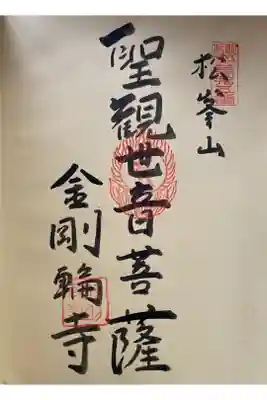 松峯山
聖觀世音菩薩
金剛輪寺